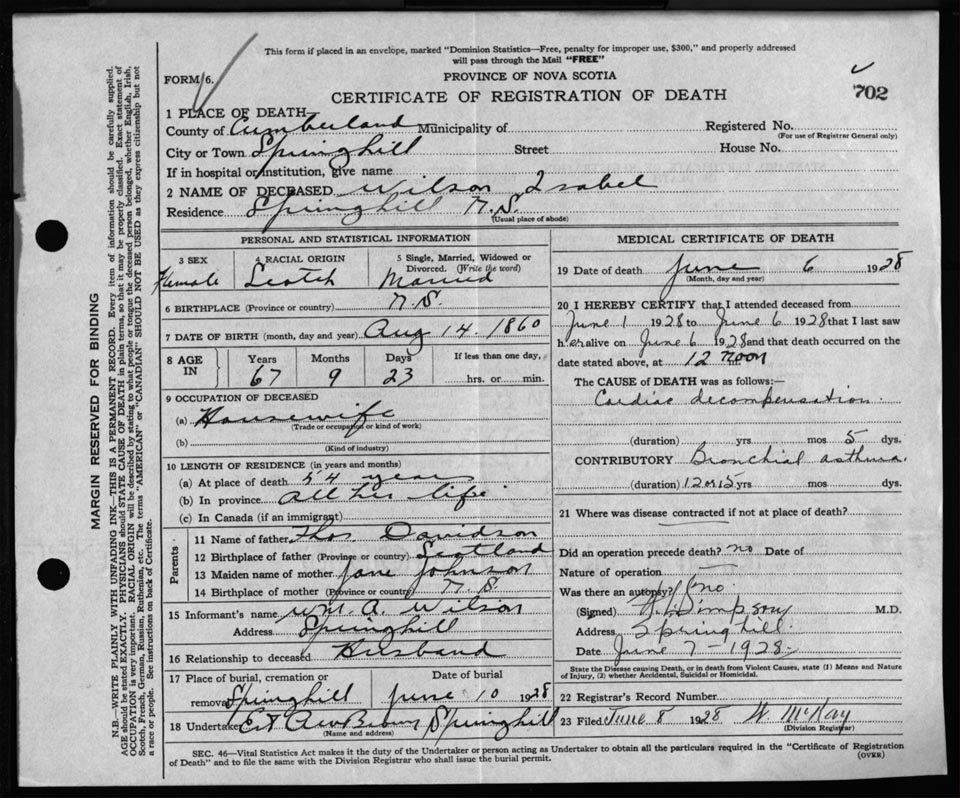 This form if placed in an envelope, marked "Dominion Statistics—Free, penalty for improper use, $300," and properly addressed
will pass through the Mail "FREE"
FORM 6.
PROVINCE OF NOVA SCOTIA
CERTIFICATE OF REGISTRATION OF DEATH
702
1 PLACE OF DEATH
County of Cumberland Municipality of Registered No.
(For use of Registrar General only)
City or Town Springhill Street House No.
If in hospital or institution, give name
2 NAME OF DECEASED Wilson Isabel
Residence Springhill N.S.
(Usual place of abode)
PERSONAL AND STATISTICAL INFORMATION
3 SEX 4 RACIAL ORIGIN 5 Single, Married, Widowed or
Divorced. (Write the word)
Female Scotch Married
6 BIRTHPLACE (Province or country) N.S.
7 DATE OF BIRTH (month, day and year) Aug 14. 1860
8 AGE IN Years Months Days If less than one day,
67 9 23 hrs. or min.
9 OCCUPATION OF DECEASED
(a) Housewife
(Trade or occupation or kind of work)
(b)
(Kind of industry)
10 LENGTH OF RESIDENCE (in years and months)
(a) At place of death 54 years
(b) In province all her life
(c) In Canada (if an immigrant)
Parents
11 Name of father Thos. Davidson
12 Birthplace of father (Province or country) Scotland
13 Maiden name of mother Jane Johnson
14 Birthplace of mother (Province or country) N.S.
15 Informant's name Wm. A. Wilson
Address Springhill
16 Relationship to deceased Husband
17 Place of burial, cremation or Date of burial
removal Springhill June 10 1928
18 Undertaker Springhill
(Name and address)
MEDICAL CERTIFICATE OF DEATH
19 Date of death June 6 1928
(Month, day and year)
20 I HEREBY CERTIFY that I attended deceased from
June 1 1928 to June 6 1928 that I last saw
her alive on June 6 1928 and that death occurred on the
date stated above, at 12 noon
The CAUSE of DEATH was as follows:—
Cardiac decompensation.
(duration) yrs. mos 5 dys.
CONTRIBUTORY Bronchial asthma.
(duration) yrs mos dys.
21 Where was disease contracted if not at place of death?
Did an operation precede death? no Date of
Nature of operation
Was there an autopsy? no.
(Signed) Simpson M.D.
Address Springhill.
Date June 7 - 1928
State the Disease causing Death, or in death from Violent Causes, state (1) Means and Nature
of Injury, (2) whether Accidental, Suicidal or Homicidal.
22 Registrar's Record Number
23 Filed June 8 1928 W. McKay
(Division Registrar)
SEC. 46—Vital Statistics Act makes it the duty of the Undertaker or person acting as Undertaker to obtain all the particulars required in the "Certificate of Registration
of Death" and to file the same with the Division Registrar who shall issue the burial permit.
(OVER)
MARGIN RESERVED FOR BINDING
N.B.—WRITE PLAINLY WITH UNFADING INK—THIS IS A PERMANENT RECORD. Every item of information should be carefully supplied.
AGE should be stated EXACTLY. PHYSICIANS should STATE CAUSE OF DEATH in plain terms, so that it may be properly classified. Exact statement of
OCCUPATION is very important. RACIAL ORIGIN will be described by stating to what people or tongue the deceased person belonged, whether English, Irish,
Scotch, French, German, Russian, Ruthenian, etc. The terms "AMERICAN" or "CANADIAN" SHOULD NOT BE USED as they express citizenship but not
a race or people. See instructions on back of Certificate.